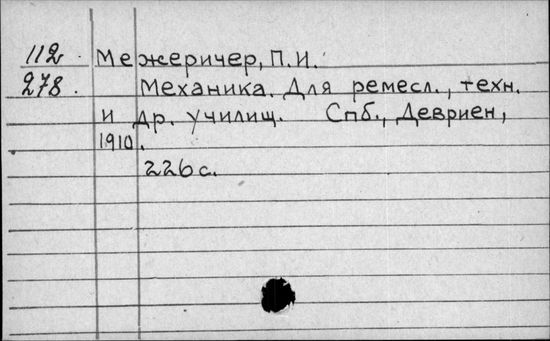 112 Межеричер, П.И.
278. Механика. Для ремесл., техн.
и др. училищ. Спб., Девриен,
1910.
226 с.